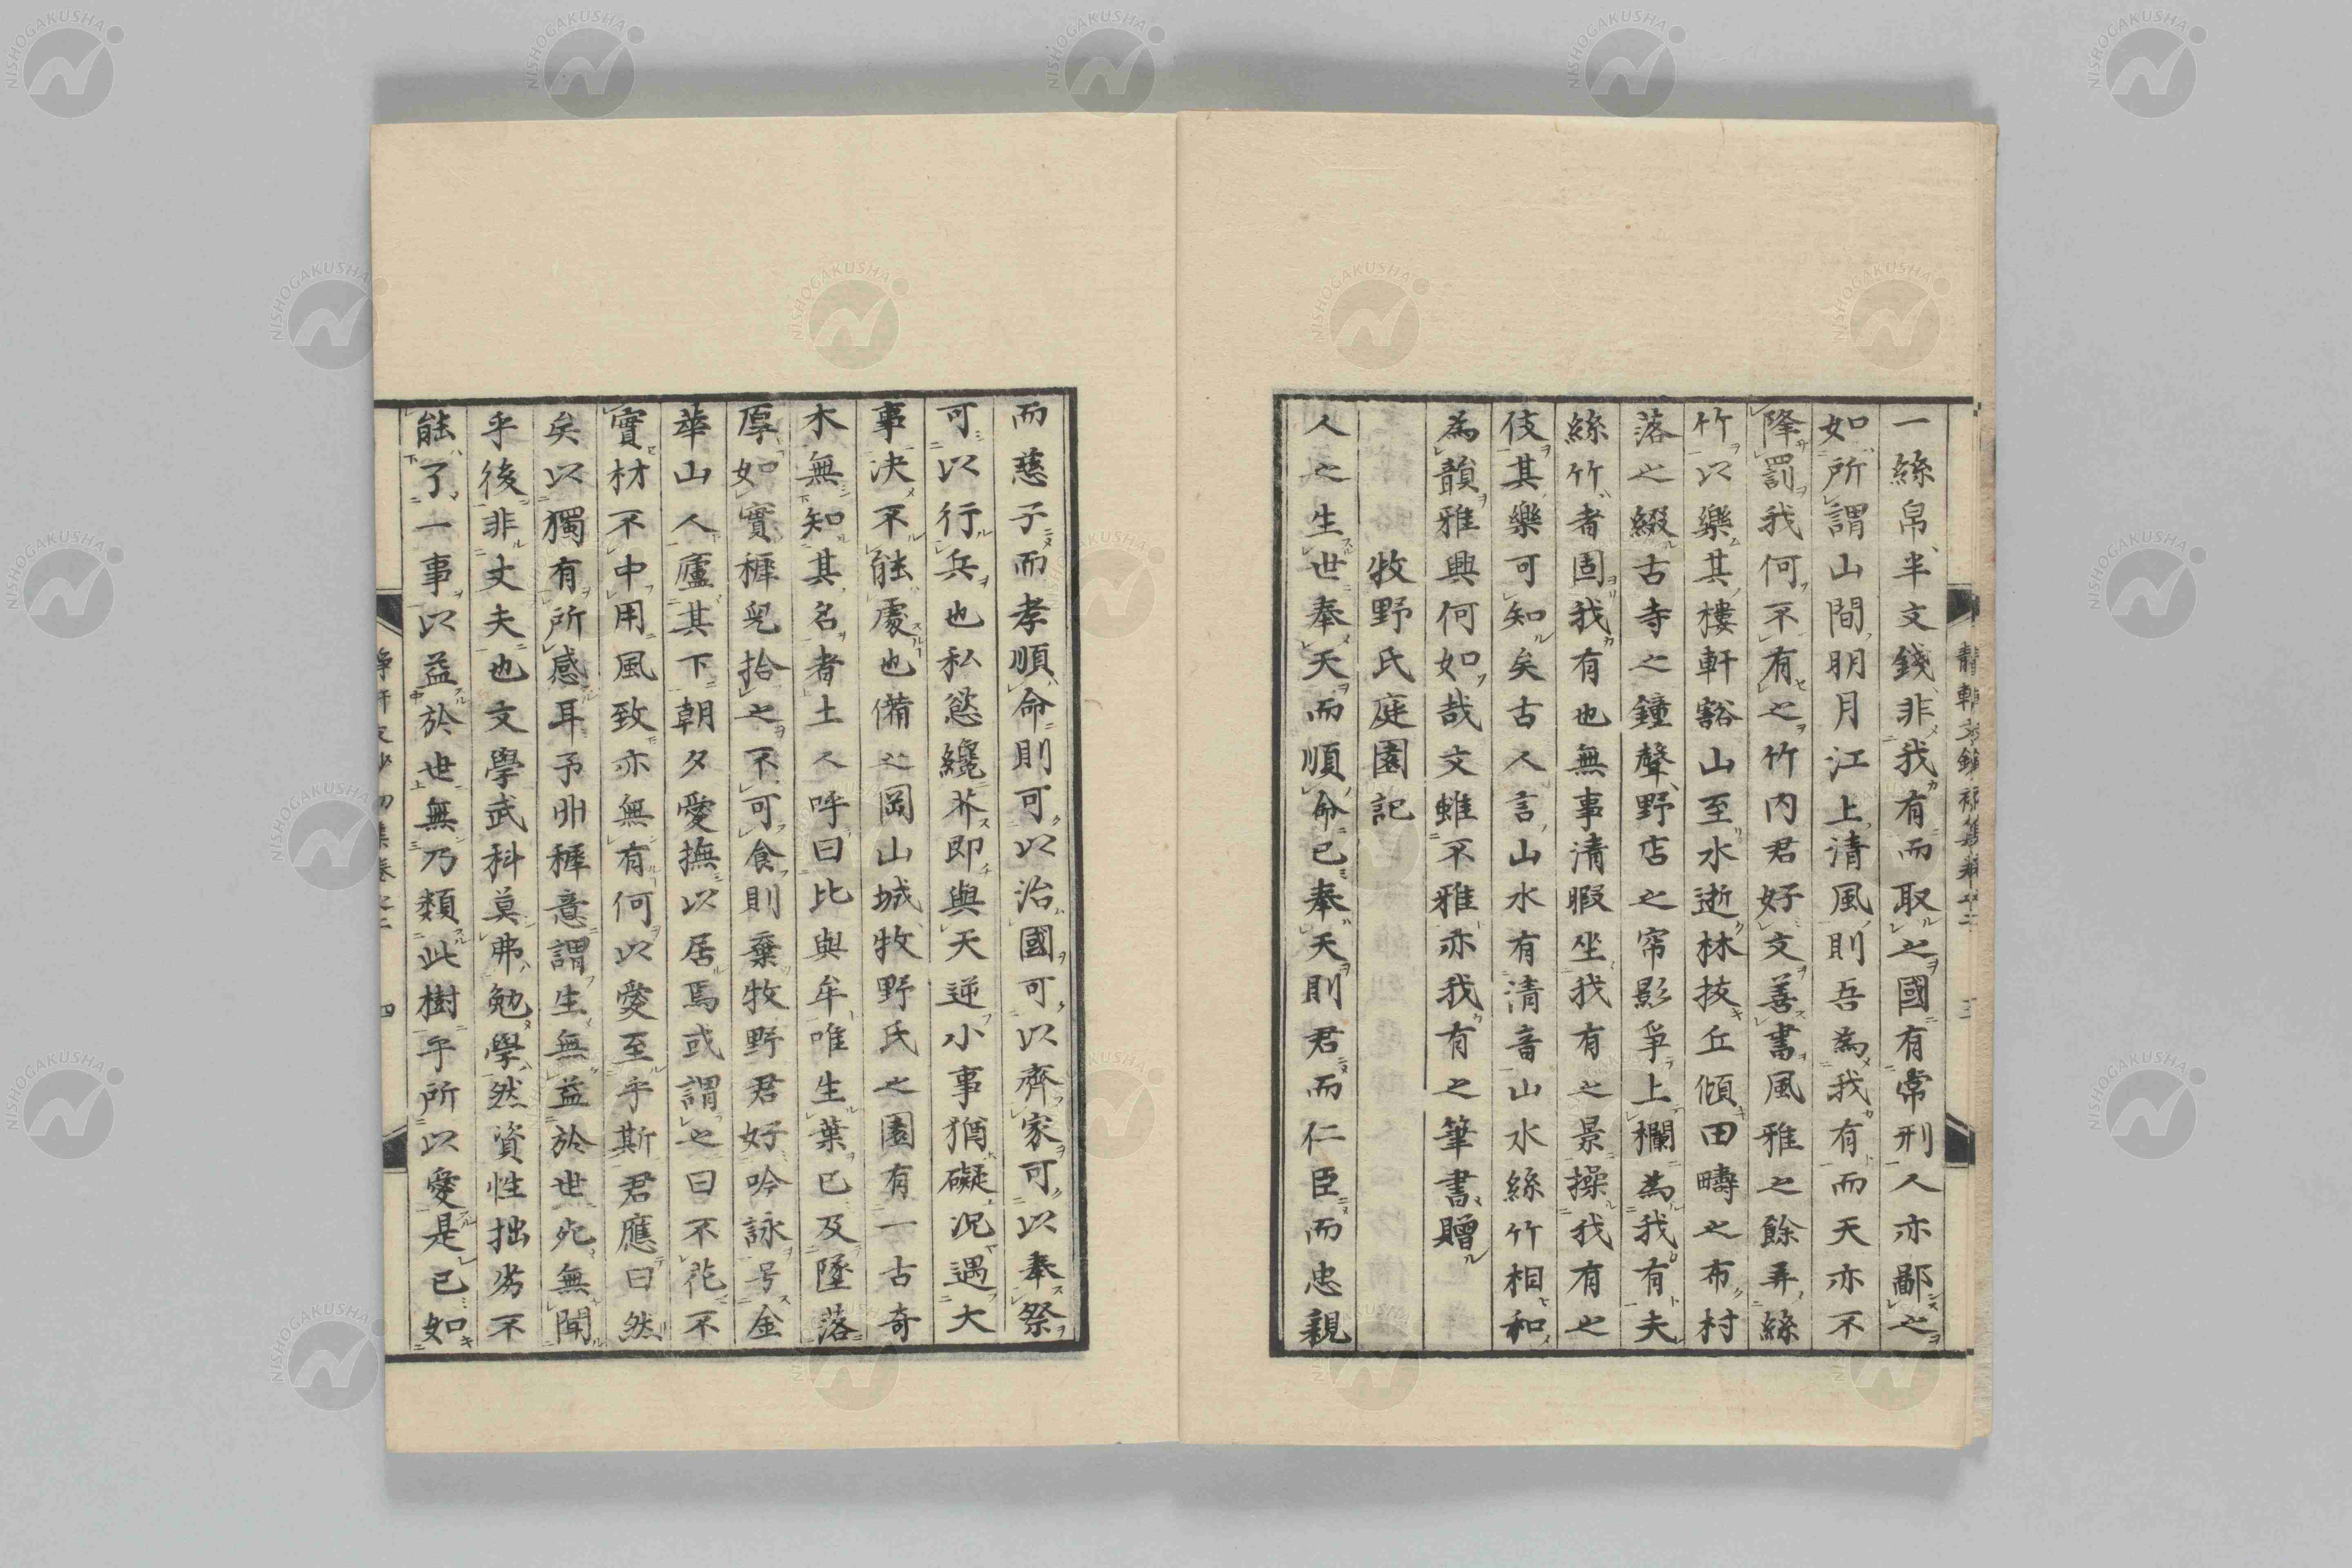 一絲帛半文錢非我有而取之國有常刑人亦鄙之
如所謂山間明月江上清風則吾為我有而天亦不
降罰我何不有之竹内君好文善書風雅之餘弄絲
竹以樂其樓軒豁山至水逝林抜丘傾田疇之布村
落之綴古寺之鐘聲野店之帘影爭上欄為我有夫
絲竹者固我有也無事清暇坐我有之景操我有之
伎其樂可知矣古人言山水有清音山水絲竹相和
為韻雅興何如哉文雖不雅亦我有之筆書贈
牧野氏庭園記
人之生世奉天而順命已奉天則君而仁臣而忠親
而慈子而孝順命則可以治國可以齊家可以奉祭
可以行兵也私慾纔芥即與天逆小事猶礙況遇大
事決不能處也備之岡山城牧野氏之園有一古奇
木無知其名者土人呼曰比與牟唯生葉已及墜落
厚如實稺兒拾之不可食則棄牧野君好吟詠号金
華山人廬其下朝夕愛撫以居焉或謂之曰不花不
實材不中用風致亦無有何以愛至乎斯君應曰然
矣以獨有所感耳予丱稺意謂生無益於世死無聞
乎後非丈夫也文學武科莫弗勉學然資性拙劣不
能了一事以益於世無乃類此樹乎所以愛是已如
NISHOGAKUSHA